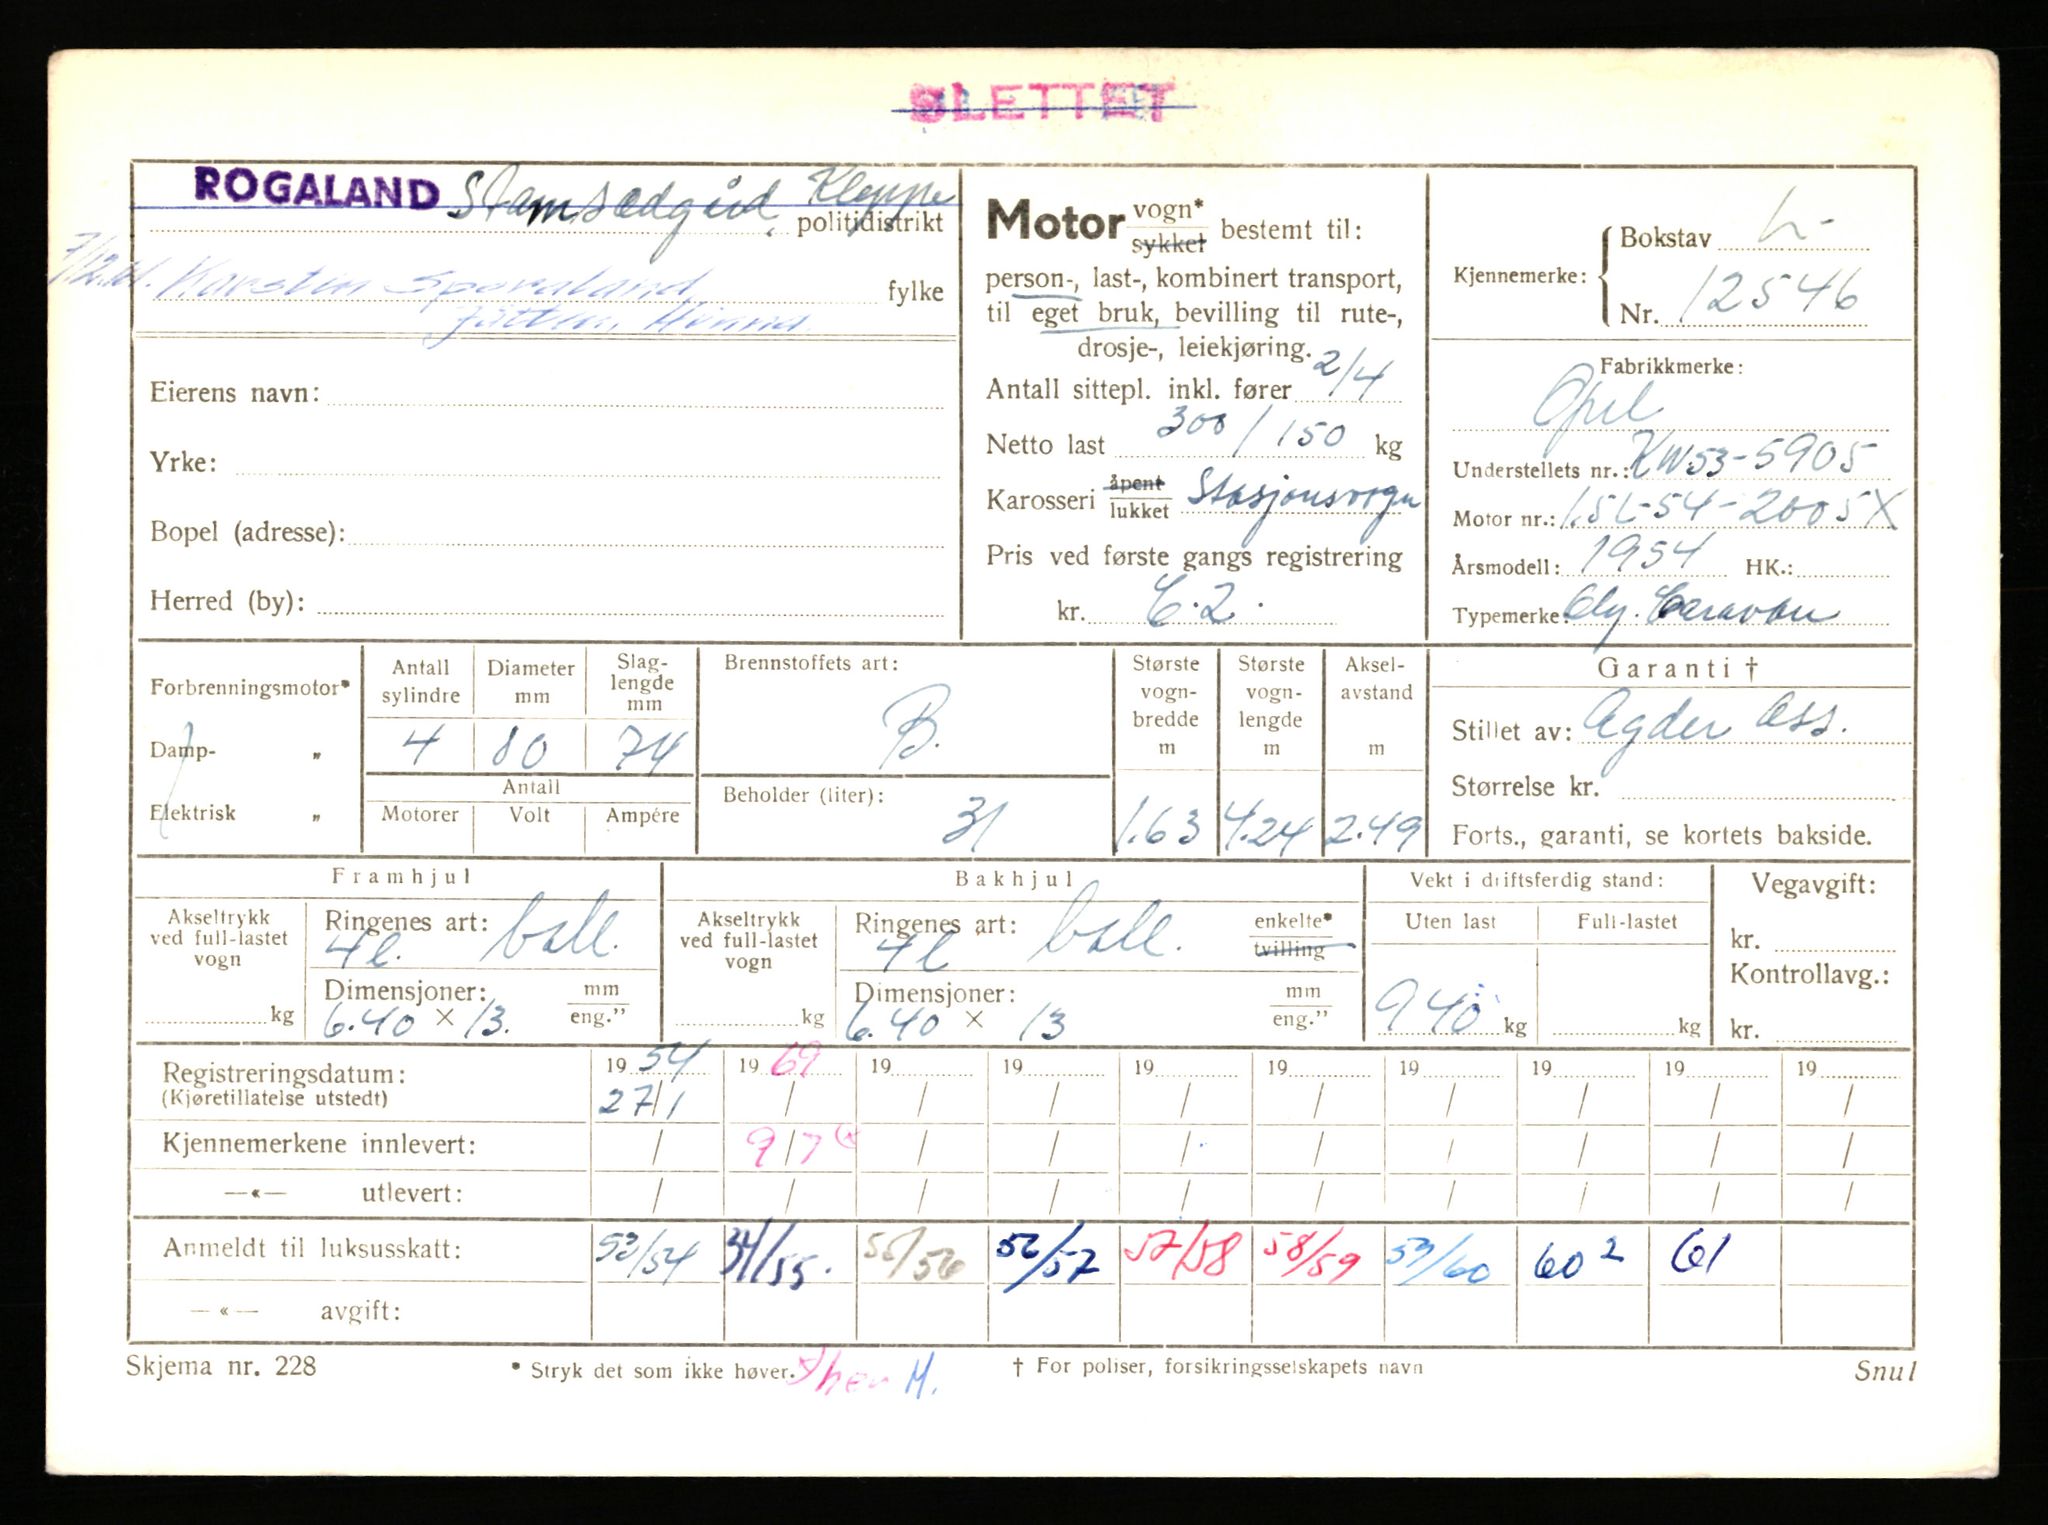 SLETTET
ROGALAND Stamsædgård, Kleppe
politidistrikt
7/12.61. Karsten
fylke
Jåttten, Hinna.
Eierens navn:
Yrke:
Bopel (adresse):
Herred (by):
Motor vogn* sykkel bestemt til:
person-, last-, kombinert transport,
til eget bruk, bevilling til rute-,
drosje-, leiekjøring.
Antall sittepl. inkl. fører 2/4
Netto last 300/150 kg
Karosseri åpent lukket Stasjonsvogn
Pris ved første gangs registrering
kr. C.2.
Kjennemerke: Bokstav L-
Nr. 12546
Fabrikkmerke:
Opel
Understellets nr.: KW53-5905
Motor nr.: 1.5L-54-2005X
Årsmodell: 1954 HK.:
Typemerke: Oly. Caravan
Forbrenningsmotor*
Damp- „
Elektrisk „
Antall sylindre
Diameter mm
Slag-lengde mm
4 80 74
Antall
Motorer Volt Ampére
Brennstoffets art:
B.
Beholder (liter):
31
Største vogn-bredde m
1.63
Største vogn-lengde m
4.24
Aksel-avstand m
2.49
Garanti †
Stillet av: Agder Ass.
Størrelse kr.
Forts., garanti, se kortets bakside.
Framhjul
Akseltrykk ved full-lastet vogn
kg
Ringenes art: ball.
4l.
Dimensjoner: mm eng."
6.40 × 13.
Bakhjul
Akseltrykk ved full-lastet vogn
kg
Ringenes art: ball. enkelte* tvilling
4l
Dimensjoner: mm eng."
6.40 × 13
Vekt i driftsferdig stand:
Uten last Full-lastet
940 kg kg
Vegavgift:
kr.
Kontrollavg.:
kr.
Registreringsdatum: 19 54 19 69 19 19 19 19 19 19 19 19
(Kjøretillatelse utstedt) 27/1 / / / / / / / / /
Kjennemerkene innlevert: / 9/7 / / / / / / / /
—«— utlevert: / / / / / / / / / /
Anmeldt til luksusskatt: 53/54 54/55. 55/56 56/57 57/58 58/59 59/60 60² 61
—«— avgift:
Skjema nr. 228
* Stryk det som ikke høver.
H.
† For poliser, forsikringsselskapets navn
Snul